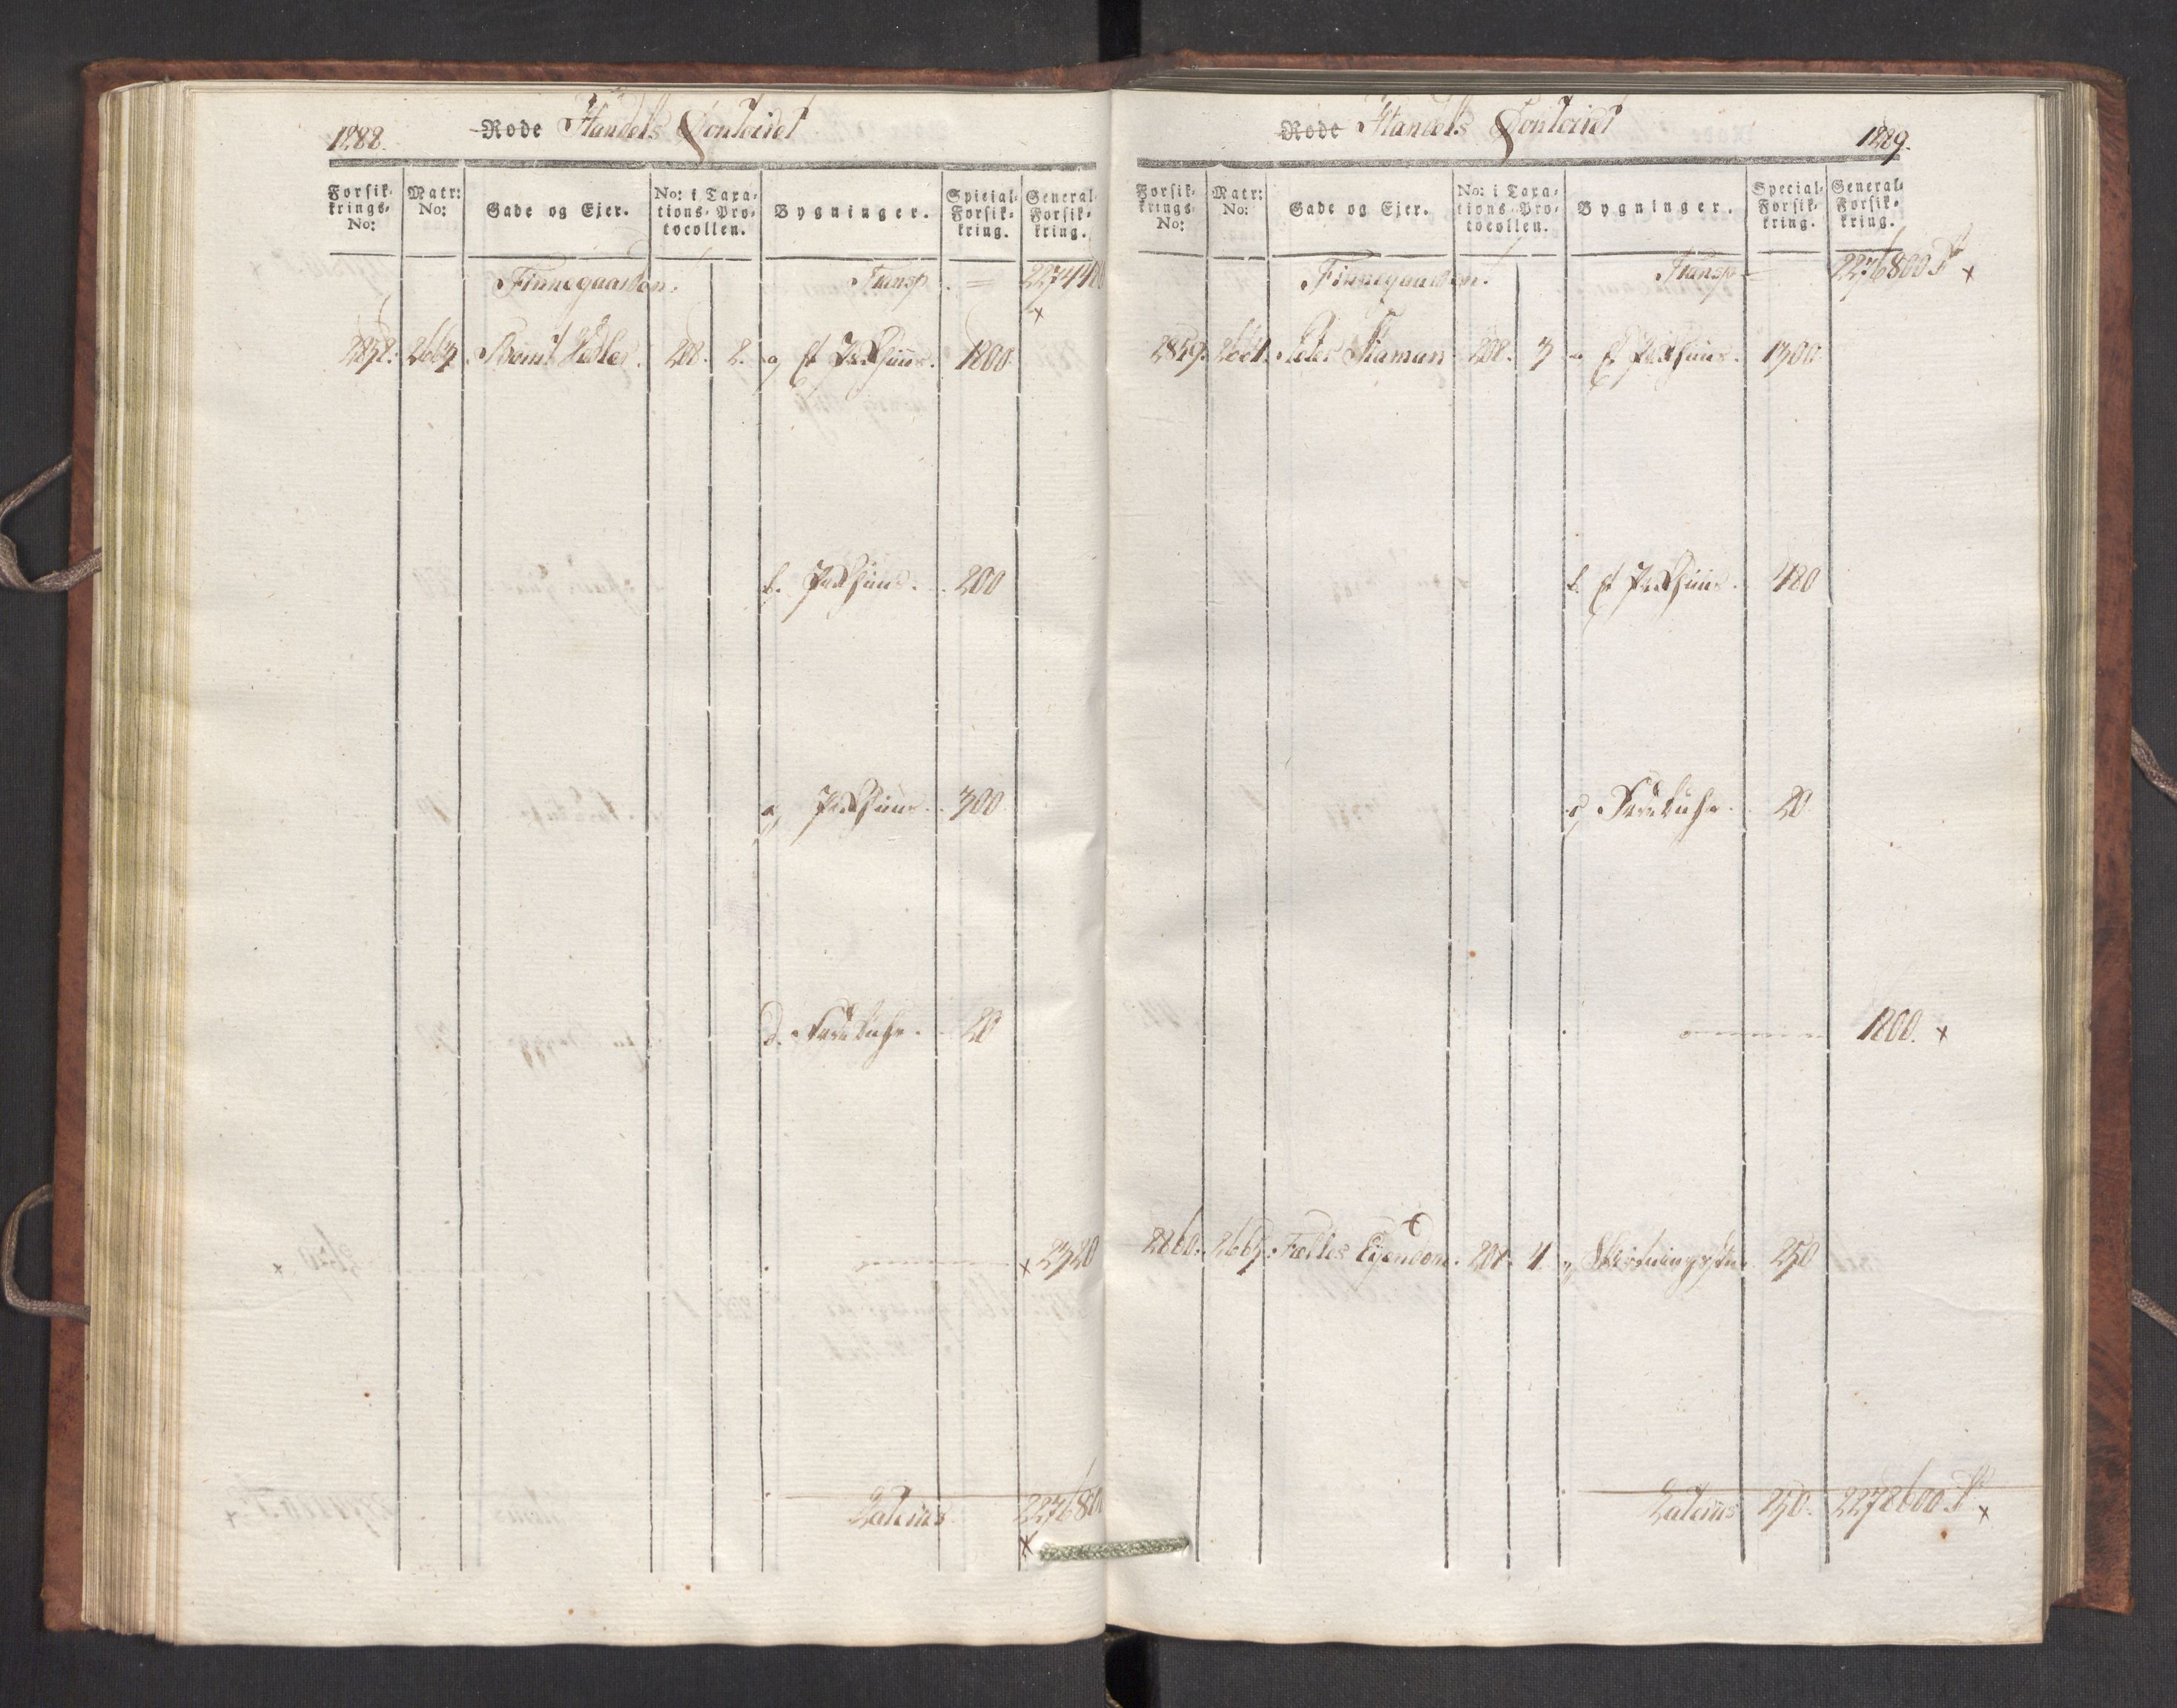 1288.
Rode Handels Contoiret
Forsik-krings-No: Matr: No: Gade og Ejer. No: i Taxa-tions-Pro-tocollen. Bygninger. Spicial-Forsik-kring. General-Forsik-kring.
Finnegaarden. Transp = 2274480
x
2858. 2663. 208. 2. a, Et Pakhuus. 1800.
b. Pakhuus. 200
c, Pakhuus. 300
d. 20
x 2320
Lateris 2276800
x
Rode Handels Contoiret
1289.
Forsik-krings-No: Matr: No: Gade og Ejer. No: i Taxa-tions-Pro-tocollen. Bygninger. Special-Forsik-kring. General-Forsik-kring.
Finnegaarden. Transp = 2276800 x
2859. 2664. Peder 208. 3 a Et Pakhuus. 1300
b. Et Pakhuus. 480
c, 20
1800. x
2860. 2665. Fælles Eijendom. 208. 4. 250
Lateris 250. 2278600 x